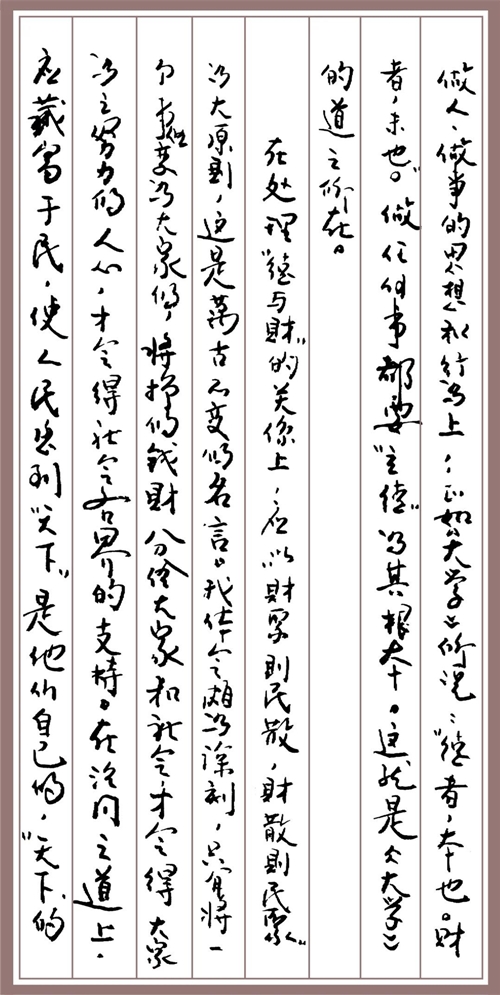 做人、做事的思想和行为上，正如《大学》所说：“德者，本也。財
者，末也”。做任何事都要“立德”为其根本。这就是《大学》
的道之所在。
在处理“德与財”的关係上，应以財聚则民散，財散则民聚”
为大原则，这是萬古不变的名言。我体会颇为深刻，只有将一
个事业变为大家的，将挣的钱財分给大家和社会，才会得大家
为之努力的人心，才会得社会各界的支持。在治国之道上，
应藏富于民，使人民感到“天下”是他们自己的，“天下”的